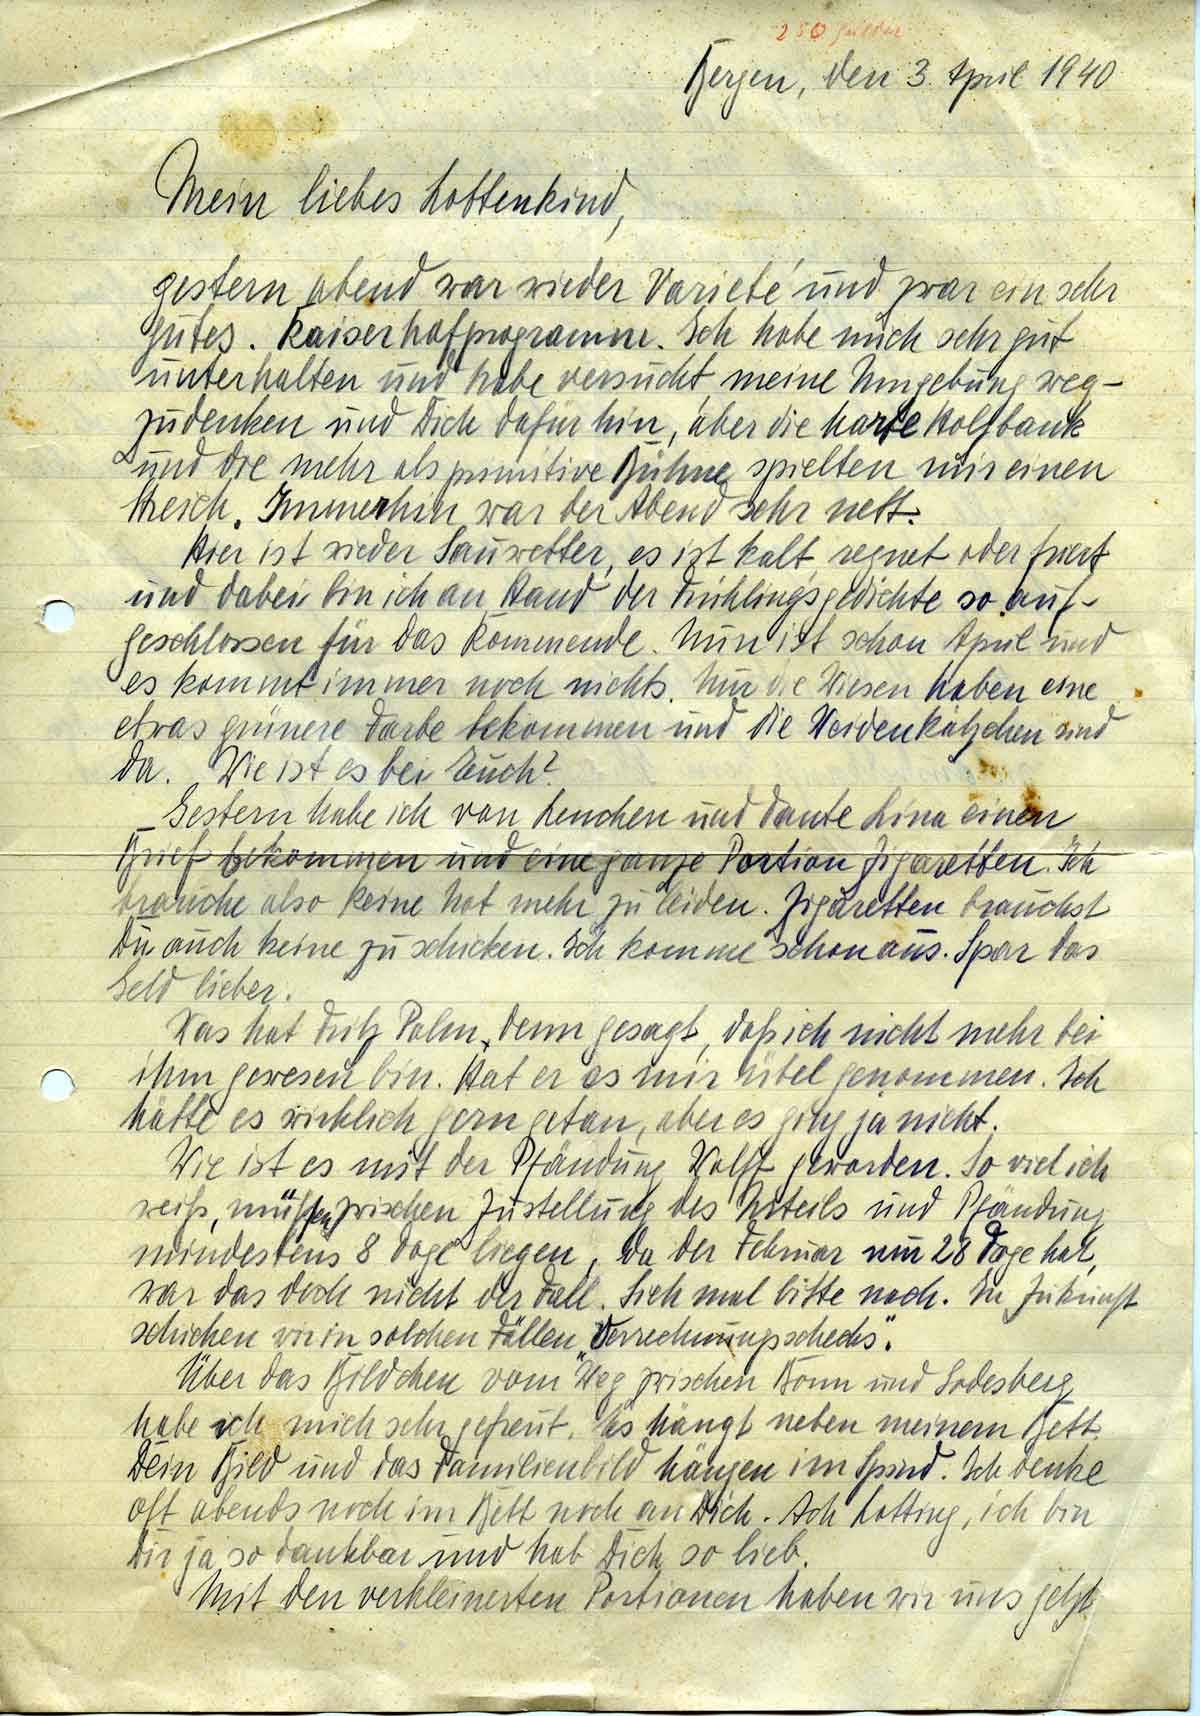 250
Bergen, den 3. April 1940
Mein liebes Lottenkind,
gestern abend war wieder Varieté und zwar ein sehr
gutes. Kaiserhofprogramm. Ich habe mich sehr gut
unterhalten und habe versucht, meine Umgebung weg-
zudenken und Dich dafür hin, aber die harte Holzbank
und die mehr als primitive Bühne spielten mir einen
Streich. Immerhin war der Abend sehr nett.
Hier ist wieder Sauwetter, es ist kalt, regnet oder friert
und dabei bin ich an Hand der Frühlingsgedichte so auf-
geschlossen für das Kommende. Nun ist schon April und
es kommt immer noch nichts. Nur die Wiesen haben eine
etwas grünere Farbe bekommen und die Weidenkätzchen sind
da. Wie ist es bei Euch?
Gestern habe ich von Lenchen und Tante Lina einen
Brief bekommen und eine ganze Portion Zigaretten. Ich
brauche also keine Not mehr zu leiden. Zigaretten brauchst
Du auch keine zu schicken. Ich komme schon aus. Spar das
Geld lieber.
Was hat Fritz Palm denn gesagt, daß ich nicht mehr bei
ihm gewesen bin. Hat er es mir übel genommen. Ich
hätte es wirklich gern getan, aber es ging ja nicht.
Wie ist es mit der Pfändung Wolff geworden. So viel ich
weiß, müssen zwischen Zustellung des Urteils und Pfändung
mindestens 8 Tage liegen, da der Februar nur 28 Tage hat,
war das doch nicht der Fall. Sieh mal bitte nach. In Zukunft
schicken wir in solchen Fällen „Verrechnungsschecks".
Über das Bildchen vom Weg zwischen Bonn und Godesberg
habe ich mich sehr gefreut. Es hängt neben meinem Bett.
Dein Bild und das Familienbild hängen im Spind. Ich denke
oft abends noch im Bett noch an Dich. Ach Lotting, ich bin
Dir ja so dankbar und hab Dich so lieb.
Mit den verkleinerten Portionen haben wir uns jetzt